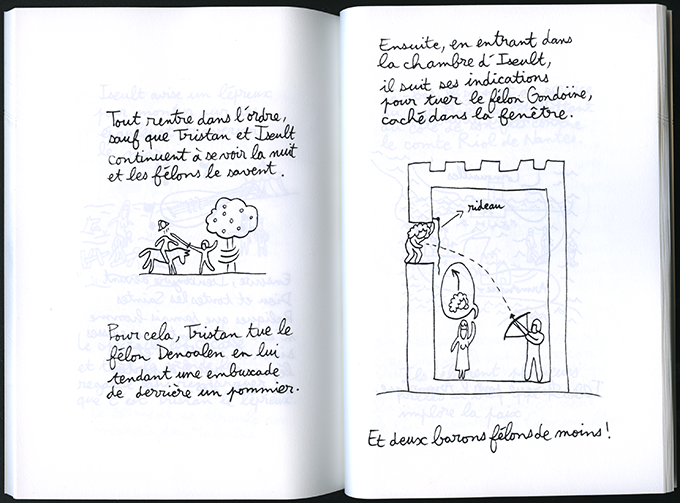 Tout rentre dans l'ordre,
sauf que Tristan et Iseult
continuent à se voir la nuit
et les félons le savent.
Pour cela, Tristan tue le
félon Denoalen en lui
tendant une embuscade
de derrière un pommier.
Ensuite, en entrant dans
la chambre d'Iseult,
il suit ses indications
pour tuer le félon Gondoïne,
caché dans la fenêtre.
rideau
Et deux barons félons de moins!